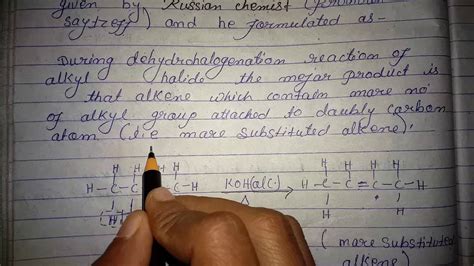 given by Russian chemist
saytzeff) and he formulated as-
During dehydrohalogenation reaction of
alkyl halide the mejar product is
that alkene which contain mare no
of alkyl group attached to daubly carbon
atom (i.e mare substituted alkene).
H H H H
H-C-C C-H KOH(alc.) H-C-C=C-C-H
H Δ H H
(mare substituted
alkene)